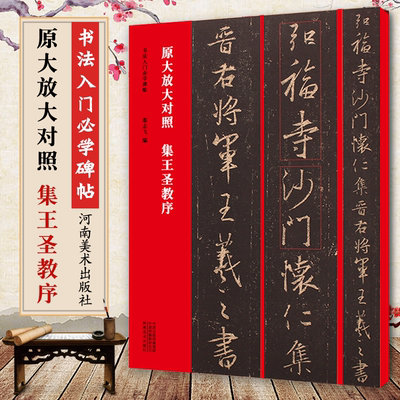 书法入门必学碑帖
原大放大对照 集王圣教序
河南美术出版社
原大放大对照 集王圣教序
弘福寺沙门怀仁集晋右将军王羲之书
弘福寺沙门怀仁集
晋右将军王羲之书